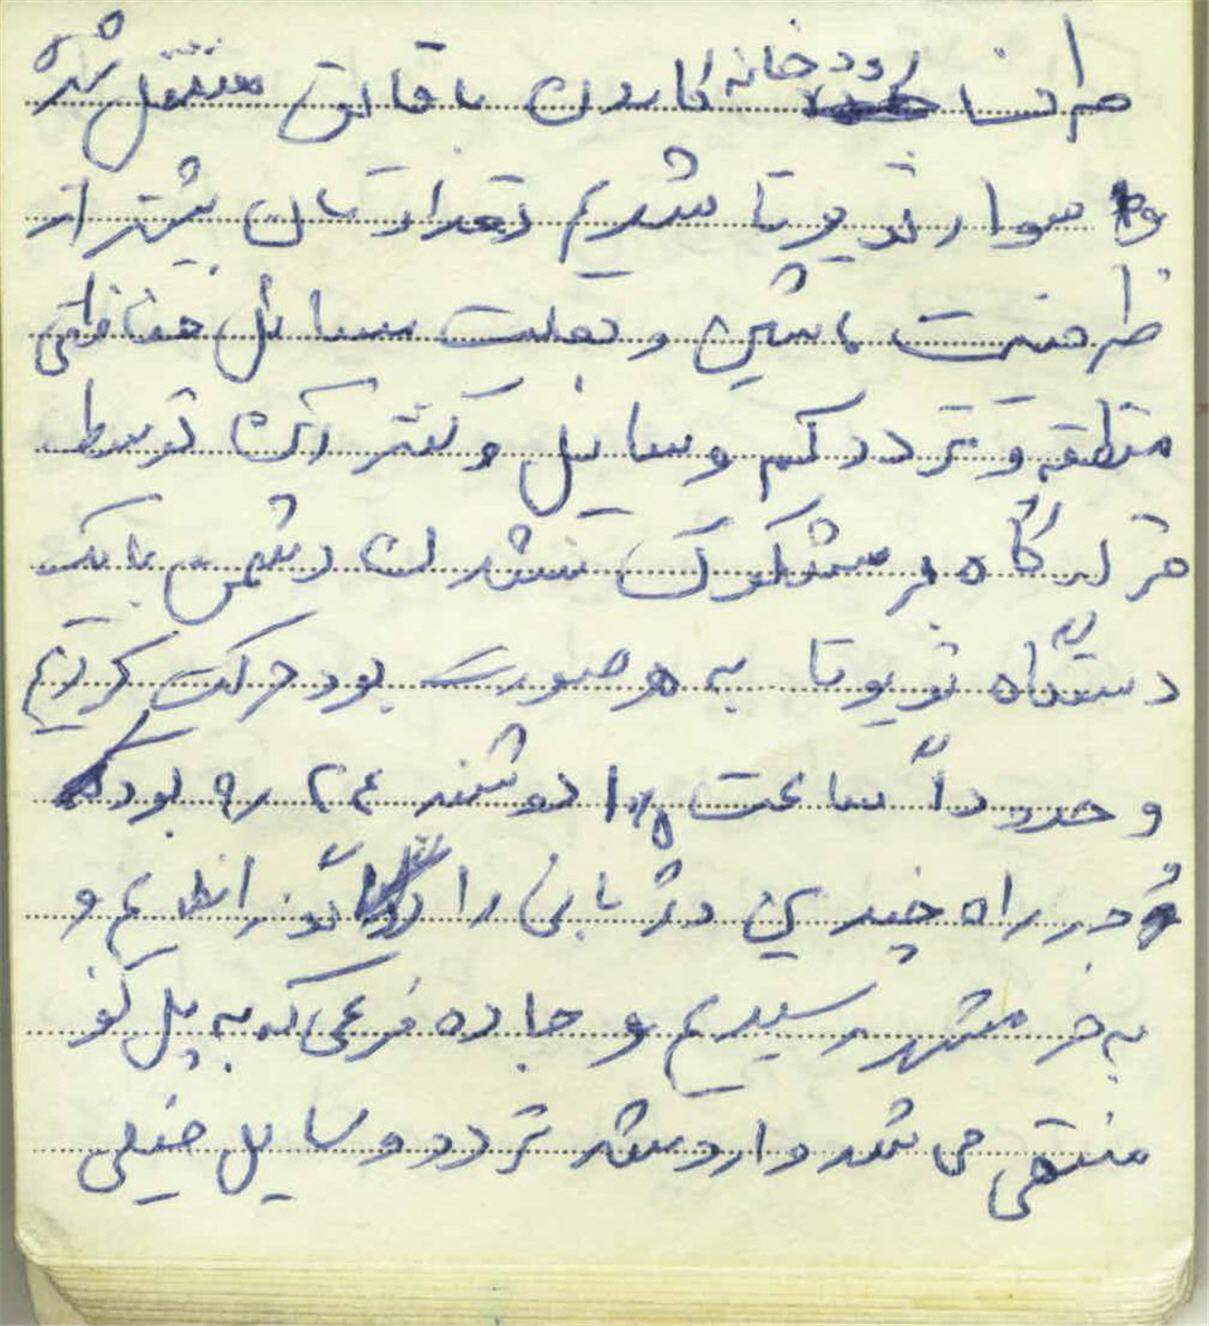 طرف رودخانه کارون با قایق منتقل شده
و سوار تویوتا شدیم تعدادمان بیشتر از
ظرفیت ماشین و بعلت مسائل حفاظتی
منطقه و تردد کم وسایل و کنترل آن توسط
قرارگاه و مشکوک نشدن دشمن با یک
دستگاه تویوتا به هر صورت بود حرکت کردیم
و حدوداً ساعت ۱۰ دوشنبه ۲۴ ر ۹ بود
در راه چندین دژبانی را گذراندیم و
به خرمشهر رسیدیم و جاده فرعی که به پل نو
منتهی می شد وارد شد تردد وسایل خیلی